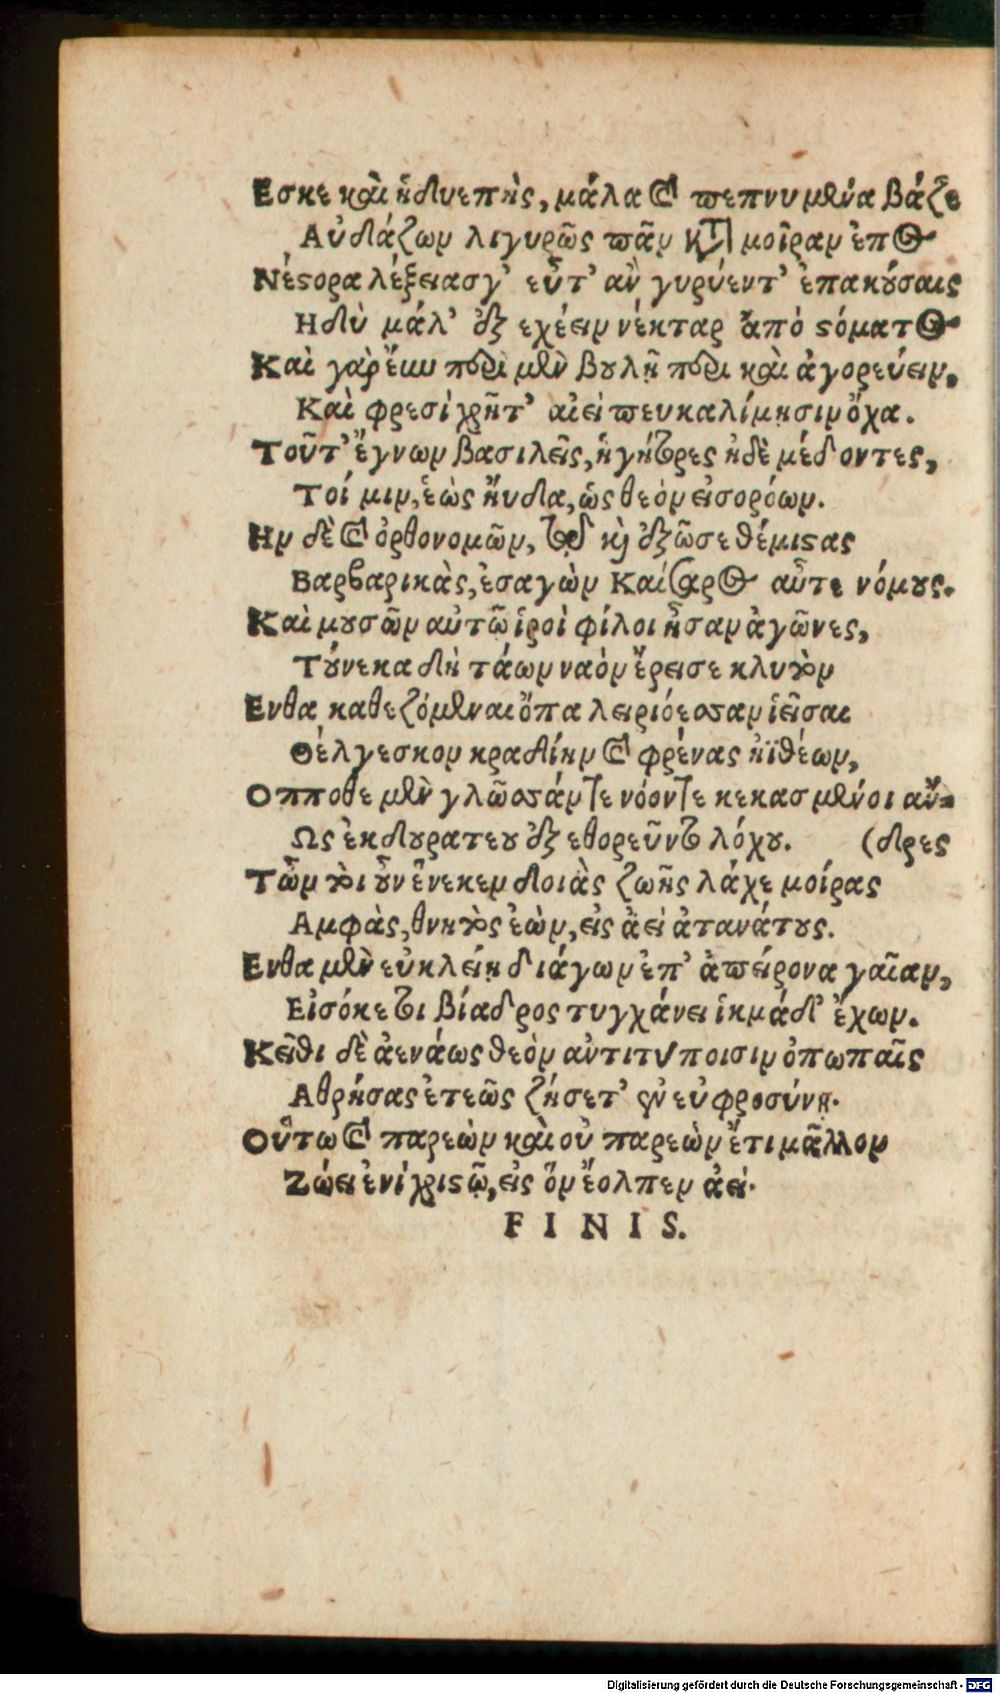 Εσκε καὶ ἡδυεπὴς, μάλα καὶ πεπνυμένα βάζε
Αὐδάζων λιγυρῶς πᾶν κατὰ μοῖραν ἐπος
Νέςορα λέξειασγ' εὖτ' ἀν γυρύεντ' ἐπακούσαις
Ηδὺ μάλ' ἐξεχέειν νέκταρ ἄπό ςόματος
Καὶ γὰρ ἔην περὶ μὲν βουλῇ περὶ καὶ ἀγορεύειν,
Καὶ φρεσὶ χρῆτ' αἰεὶ πευκαλίμῃσιν ὄχα.
Τοῦτ' ἔγνων βασιλεῖς, ἡγήτορες ἠδὲ μέδοντες,
Τοί μιν, ἑὼς ἤυδα, ὡς θεὸν εἰσορόων.
Ην δὲ καὶ ὀρθονομῶν, καὶ ἐξῶσε θέμιςας
Βαρβαρικὰς, ἐσαγὼν Καίσαρος αὖτε νόμους.
Καὶ μουσῶν αὐτῷ ἱροὶ φίλοι ἦσαν ἀγῶνες,
Τούνεκα δὴ τάων ναὸν ἔρεισε κλυτὸν
Ενθα καθεζόμεναι ὄπα λειριόεσσαν ἱεῖσαι
Θέλγεσκον κραδίην καὶ φρένας ἠϊθέων,
Οπποθε μὲν γλῶσσάν τε νόον τε κεκασμένοι αὔν=
Ως ἐκ δουρατεου ἐξεθορεῦντο λόχου. (δρες
Τῶν τοι οὖν ἕνεκεν δοιὰς ζωῆς λάχε μοίρας
Αμφὰς, θνητὸς ἐὼν, εἰς ἀεὶ ἀτανάτους.
Ενθα μὲν εὐκλείῃ διάγων ἐπ' ἀπείρονα γαῖαν,
Εἰσόκε τοι βίαδρος τυγχάνει ἰκμάδ' ἔχων.
Κεῖθι δὲ ἀενάως θεὸν αντιτύποισιν ὀπωπαῖς
Αθρήσας ἐτεῶς ζήσετ' ἐν εὐφροσύνῃ.
Οὕτω καὶ παρεὼν καὶ οὐ παρεὼν ἔτι μᾶλλον
Ζώει ἐνί χριςῷ, εἰς ὃν ἔολπεν ἀεί.
FINIS.
Digitalisierung gefördert durch die Deutsche Forschungsgemeinschaft - DFG